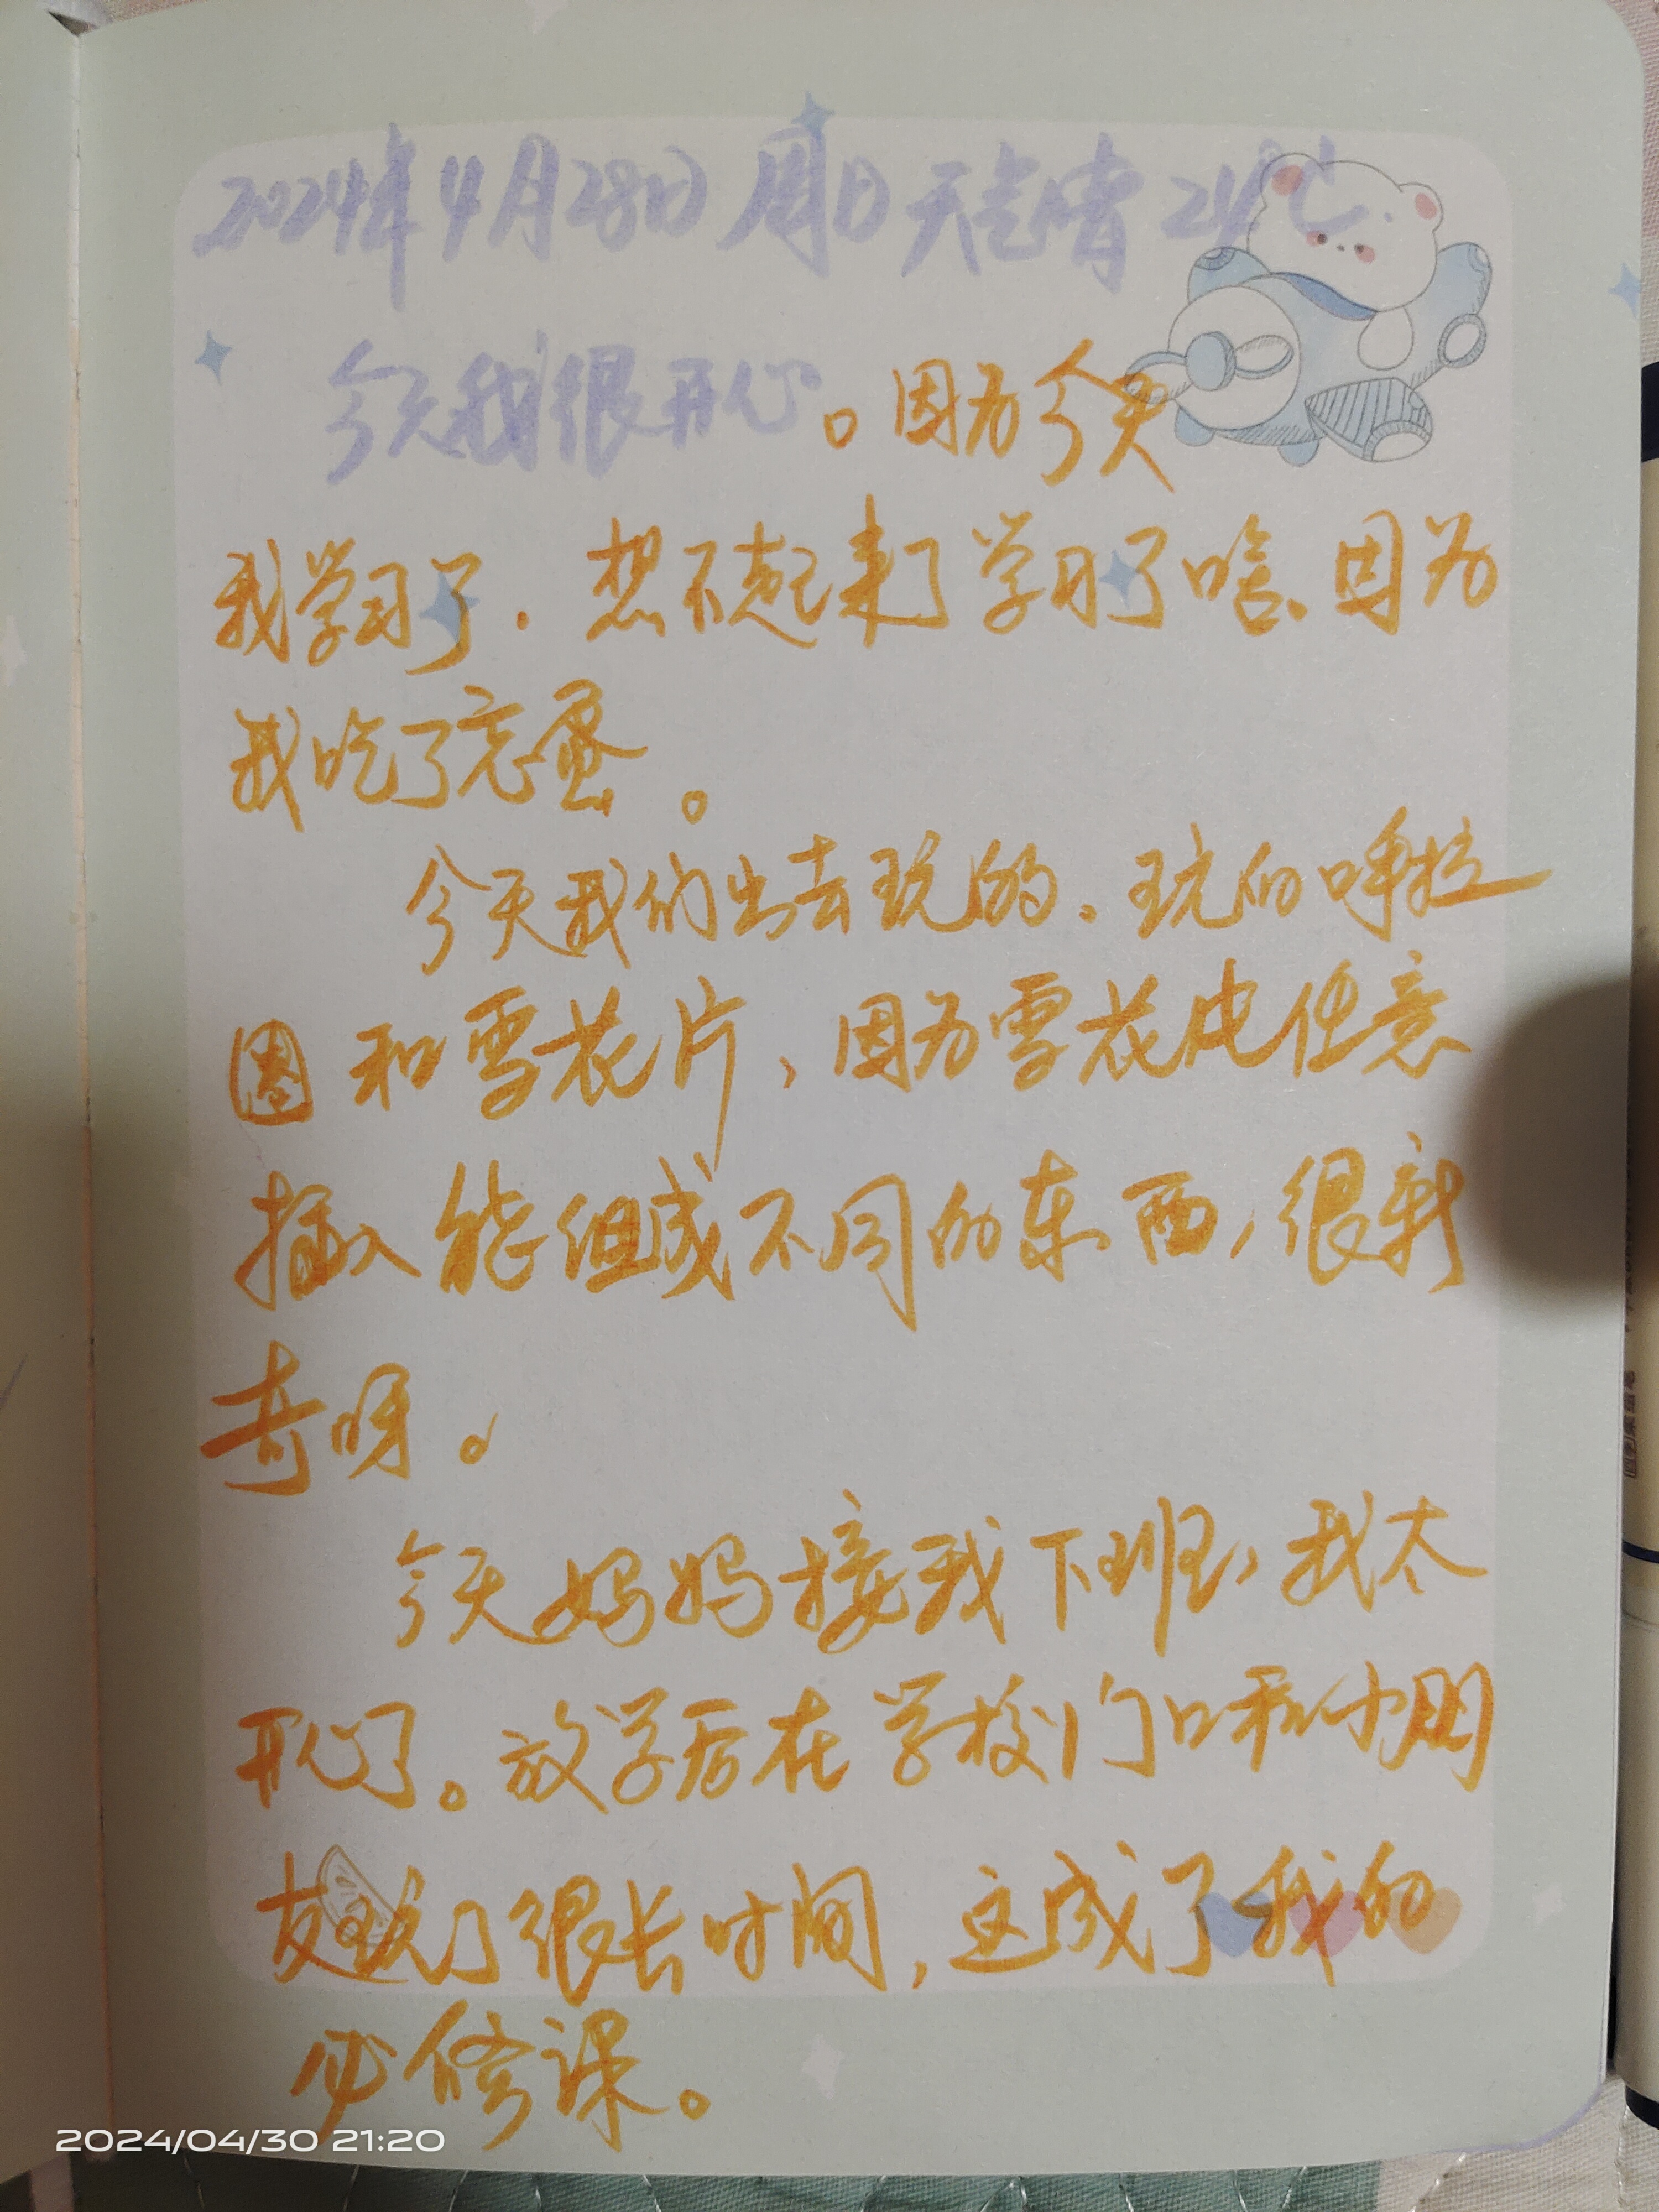 2024年4月28日 周日 天气晴 24℃.
今天我很开心。因为今天
我学习了. 想不起来了学习了啥、因为
我吃了忘蛋。
今天我们出去玩的. 玩的呼拉
圈和雪花片, 因为雪花片任意
插入能组成不同的东西, 很新
奇呀。
今天妈妈接我下班, 我太
开心了。放学后在学校门口和小朋
友玩了很长时间, 这成了我的
必修课。
2024/04/30 21:20